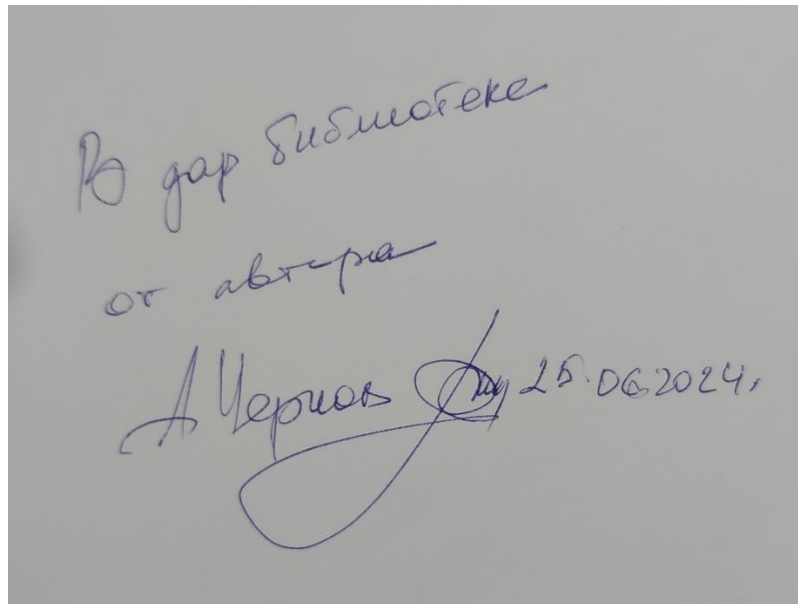 В дар библиотеке
от автора
А Чернов 25.06.2024.